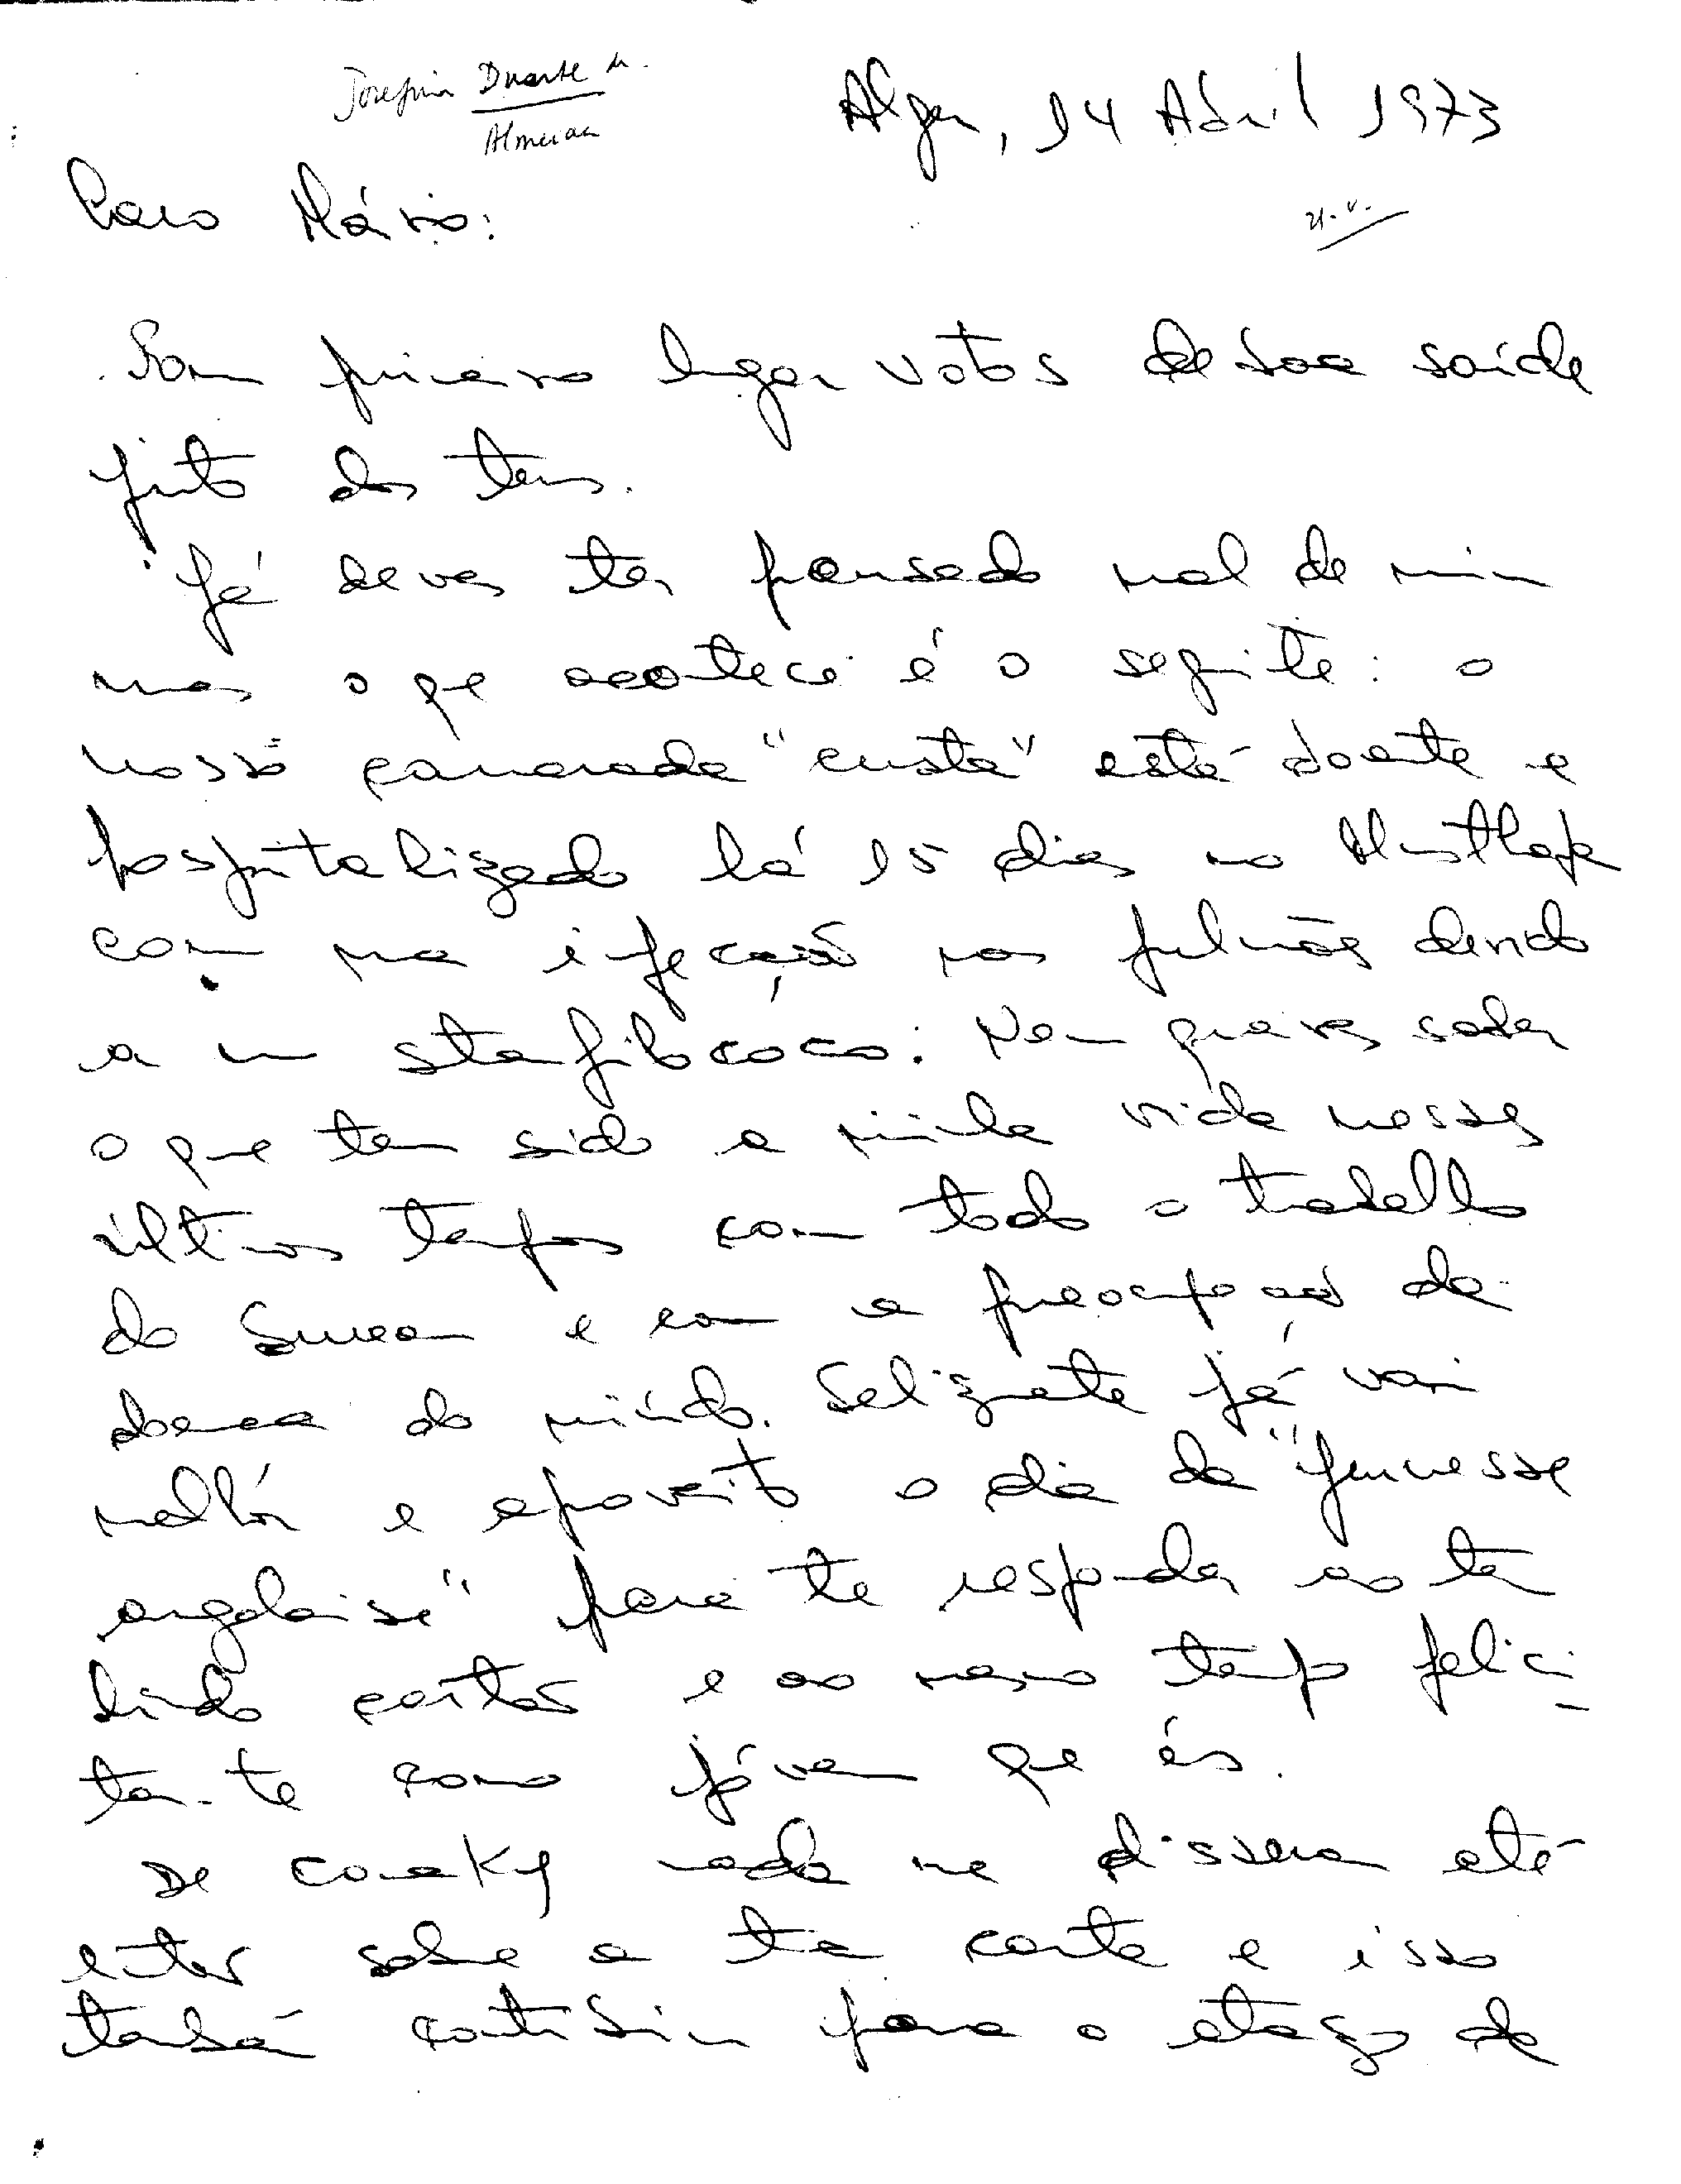 Josefina Duarte de
Almeida
Alger, 14 Abril 1973
21. V.
Caro Mário:
Em primeiro lugar votos de boa saúde
junto dos teus.
Já deves ter pensado mal de mim
mas o que acontece é o seguinte: o
nosso camarada "custa" está doente e
hospitalizado há 15 dias no Musthafa
com uma infecção nos pulmões devido
a um stafilococo. Nem queiras saber
o que tem sido a minha vida nesses
últimos tempos com todo o trabalho
do Bureau e com a preocupação da
doença do miúdo. Felizmente já vai
melhór e aproveito o dia da "jeunesse
angolaise" para te responder as tuas
lindas cartas e ao mesmo tempo felici-
tar-te como jóvem que és.
De Conakry nada me disseram até
então sobre a tua carta e isso
também contribuiu para o atraso da